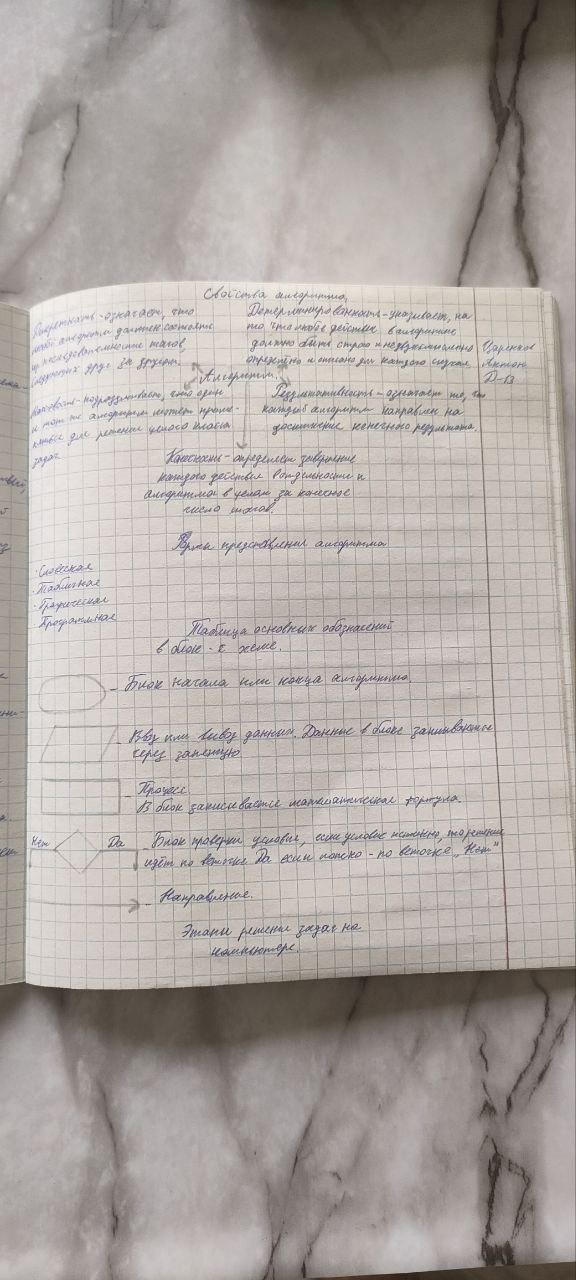 Свойства алгоритма.
Дискретность - означает, что
любой алгоритм должен состоять
из последовательности шагов,
следующих друг за другом.
Детерминированность - указывает, на
то что любое действие в алгоритме
должно быть строго и недвусмысленно
определено и описано для каждого случая.
Антон
Алгоритм.
подразумевает, что один
и тот же алгоритм может приме-
для решения целого класса
задач
Результативность - означает то, что
каждый алгоритм направлен на
достижение конечного результата.
Конечность - определяет завершение
каждого действия в отдельности и
алгоритма в целом за конечное
число шагов.
Формы представления алгоритма
· Словесная
· Табличная
· Графическая
· Программная
Таблица основных обозначений
в блок - схеме.
- Блок начала или конца алгоритма.
- Ввод или вывод данных. Данные в блоке записываются
через запятую
Процесс
В блок записывается математическая формула.
Нет
Да
- Блок проверки условия, если условие истинно, то решение
идёт по веточке Да если ложно - по веточке „Нет"
- Направление.
Этапы решения задач на
компьютере.